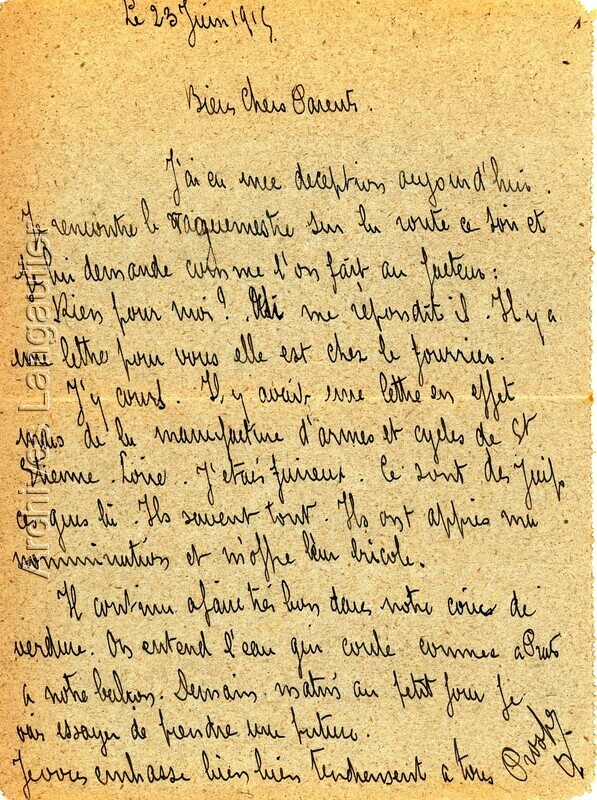 Le 23 Juin 1915
Biens Chers Parents.
J'ai eu une deception aujourd'hui.
Je rencontre le vaguemestre sur la route ce soir et
lui demande comme l'on fait au facteur:
Riens pour moi? Si me répondit il. Il y a
une lettre pour vous elle est chez le fourrier.
J'y cours. Il y avait une lettre en effet
mais de la manufacture d'armes et cycles de St
Etienne. Loire. J'etais furieux. Ce sont des Juifs
ces gens là. Ils savent tout. Ils ont appris ma
nomminations et m'offre leur bricole.
Il continu a faire très bon dans notre coin de
verdure. On entend l'eau qui coule comme a
a notre balcon. Demain matin au petit jour je
vais essayer de prendre une friture.
Je vous embrasse bien bien tendrement a tous
Archives Langauthier